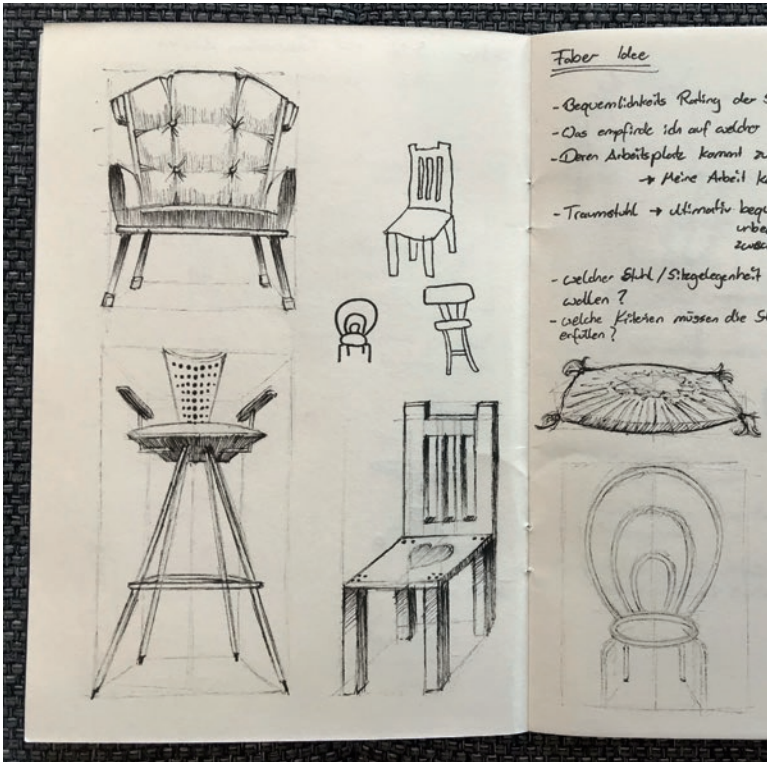 Faber Idee
- Bequemlichkeits Rating der
- Was empfinde ich auf welcher
- Deren Arbeitsplatz kommt
→ Meine Arbeit
- Traumstuhl → ultimativ
- welcher Stuhl / Sitzgelegenheit
wollen ?
- welche Kriterien müssen die
erfüllen ?